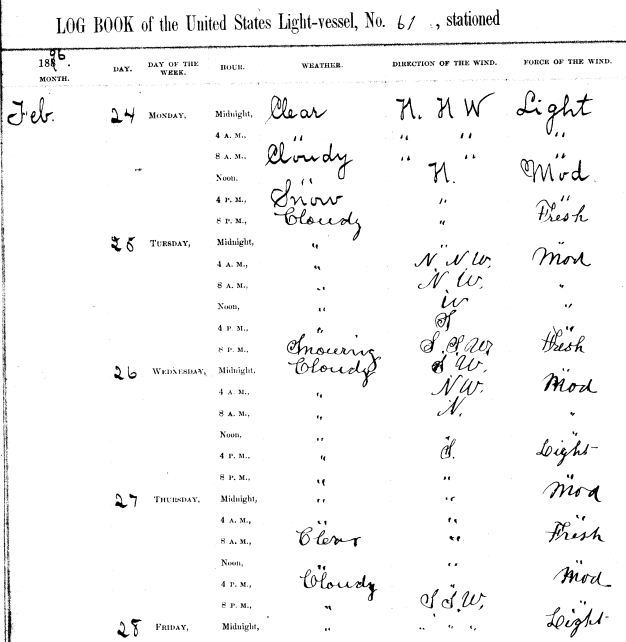 LOG BOOK of the United States Light-vessel, No. 61, stationed
1896.
MONTH. DAY. DAY OF THE WEEK. HOUR. WEATHER. DIRECTION OF THE WIND. FORCE OF THE WIND.
Feb. 24 MONDAY, Midnight, Clear N. N W Light
4 A. M., " " " "
8 A. M., Cloudy " " "
Noon. " N. Mod.
4 P. M., Snow " "
8 P. M., Cloudy " Fresh
25 TUESDAY, Midnight, " " "
4 A. M., " N N W. Mod
8 A. M., " N W. "
Noon, " W "
4 P. M., " S "
8 P. M., Snowing S. S. W. Fresh
26 WEDNESDAY, Midnight, Cloudy S W. "
4 A. M., " N W. Mod
8 A. M., " N. "
Noon, " " "
4 P. M., " S. Light
8 P. M., " " "
27 THURSDAY, Midnight, " " Mod
4 A. M., " " "
8 A. M., Clear " Fresh
Noon, " " "
4 P. M., Cloudy " Mod
8 P. M., " S S W, "
28 FRIDAY, Midnight, " " " " Light